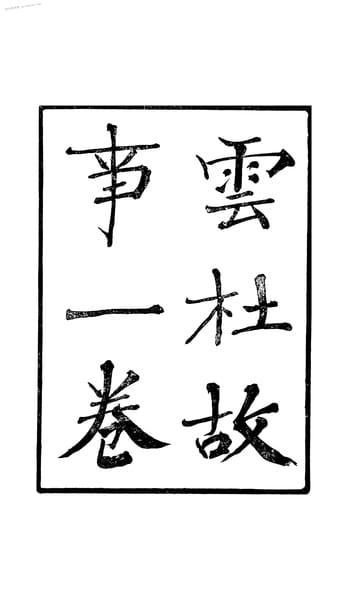 雲杜故
事一卷